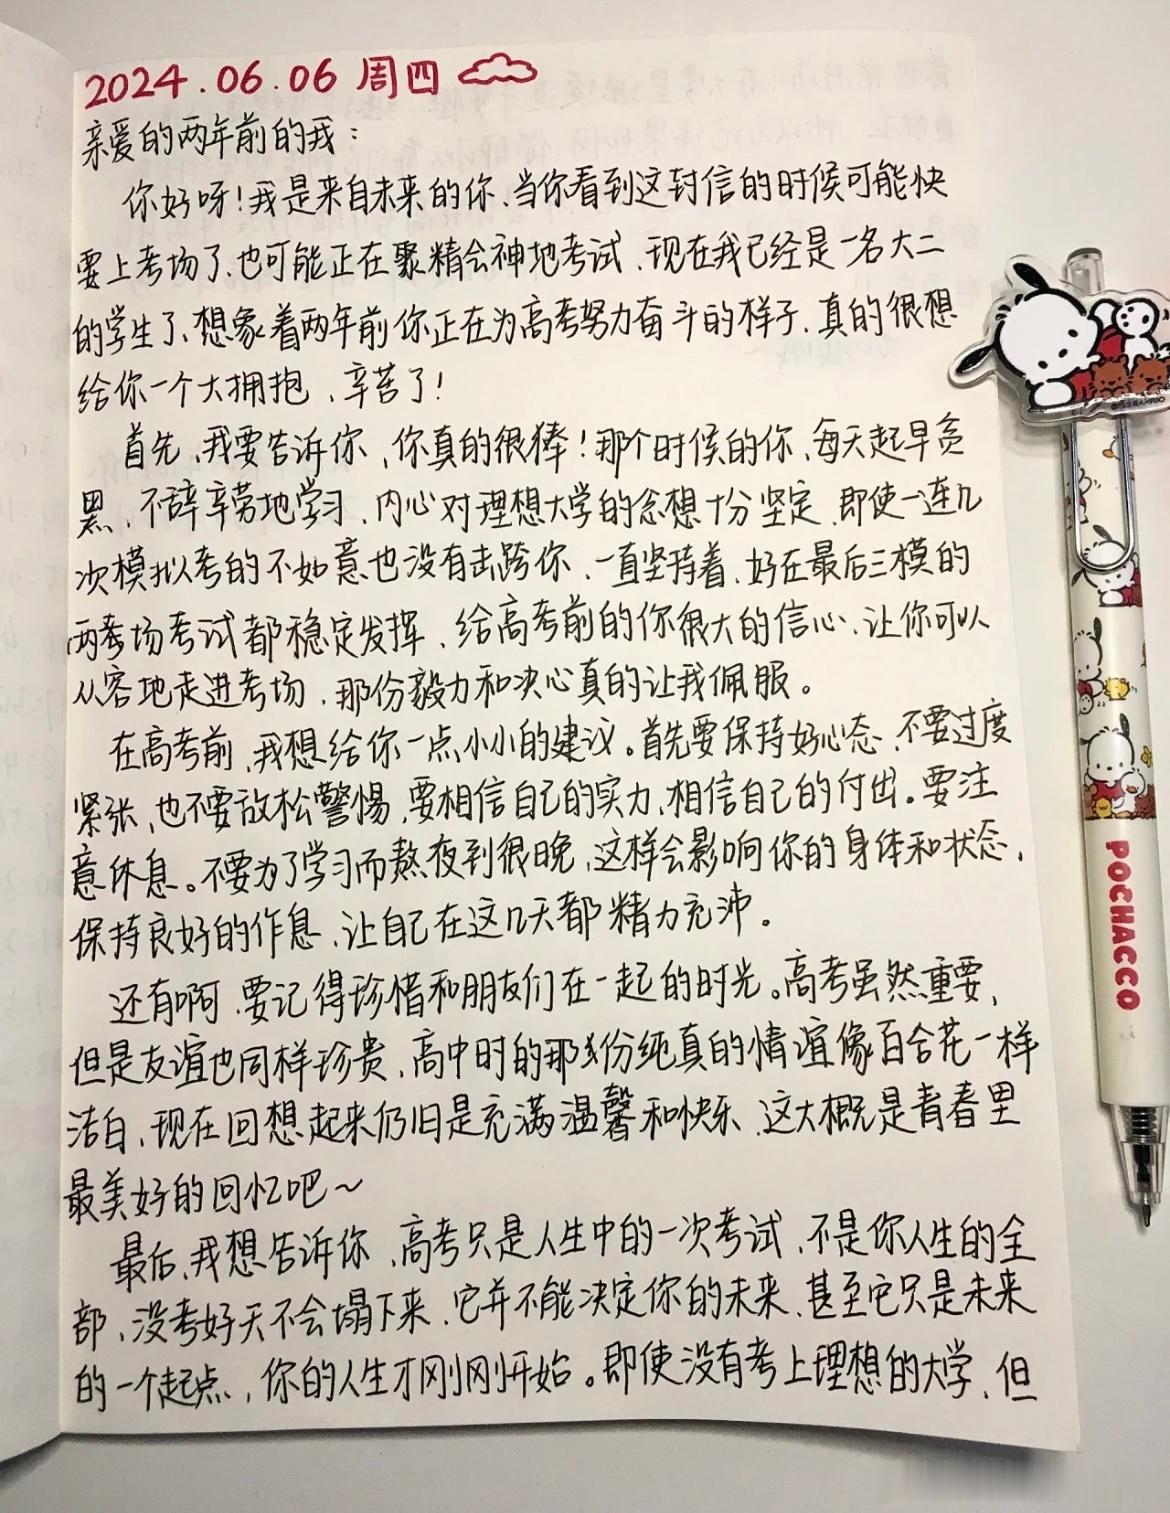 2024.06.06 周四
亲爱的两年前的我：
你好呀！我是来自未来的你、当你看到这封信的时候可能快
要上考场了、也可能正在聚精会神地考试、现在我已经是一名大二
的学生了、想象着两年前你正在为高考努力奋斗的样子、真的很想
给你一个大拥抱、辛苦了！
首先、我要告诉你、你真的很棒！那个时候的你、每天起早贪
黑、不辞辛劳地学习、内心对理想大学的念想十分坚定、即使一连几
次模拟考的不如意也没有击跨你、一直坚持着、好在最后三模的
两考场考试都稳定发挥、给高考前的你很大的信心、让你可以
从容地走进考场、那份毅力和决心真的让我佩服。
在高考前、我想给你一点小小的建议。首先要保持好心态、不要过度
紧张、也不要放松警惕、要相信自己的实力、相信自己的付出。要注
意休息。不要为了学习而熬夜到很晚、这样会影响你的身体和状态、
保持良好的作息、让自己在这几天都精力充沛。
还有啊、要记得珍惜和朋友们在一起的时光。高考虽然重要、
但是友谊也同样珍贵、高中时的那份纯真的情谊像百合花一样
洁白、现在回想起来仍旧是充满温馨和快乐、这大概是青春里
最美好的回忆吧～
最后、我想告诉你、高考只是人生中的一次考试、不是你人生的全
部、没考好天不会塌下来、它并不能决定你的未来、甚至它只是未来
的一个起点、你的人生才刚刚开始。即使没有考上理想的大学、但
POCHACCO